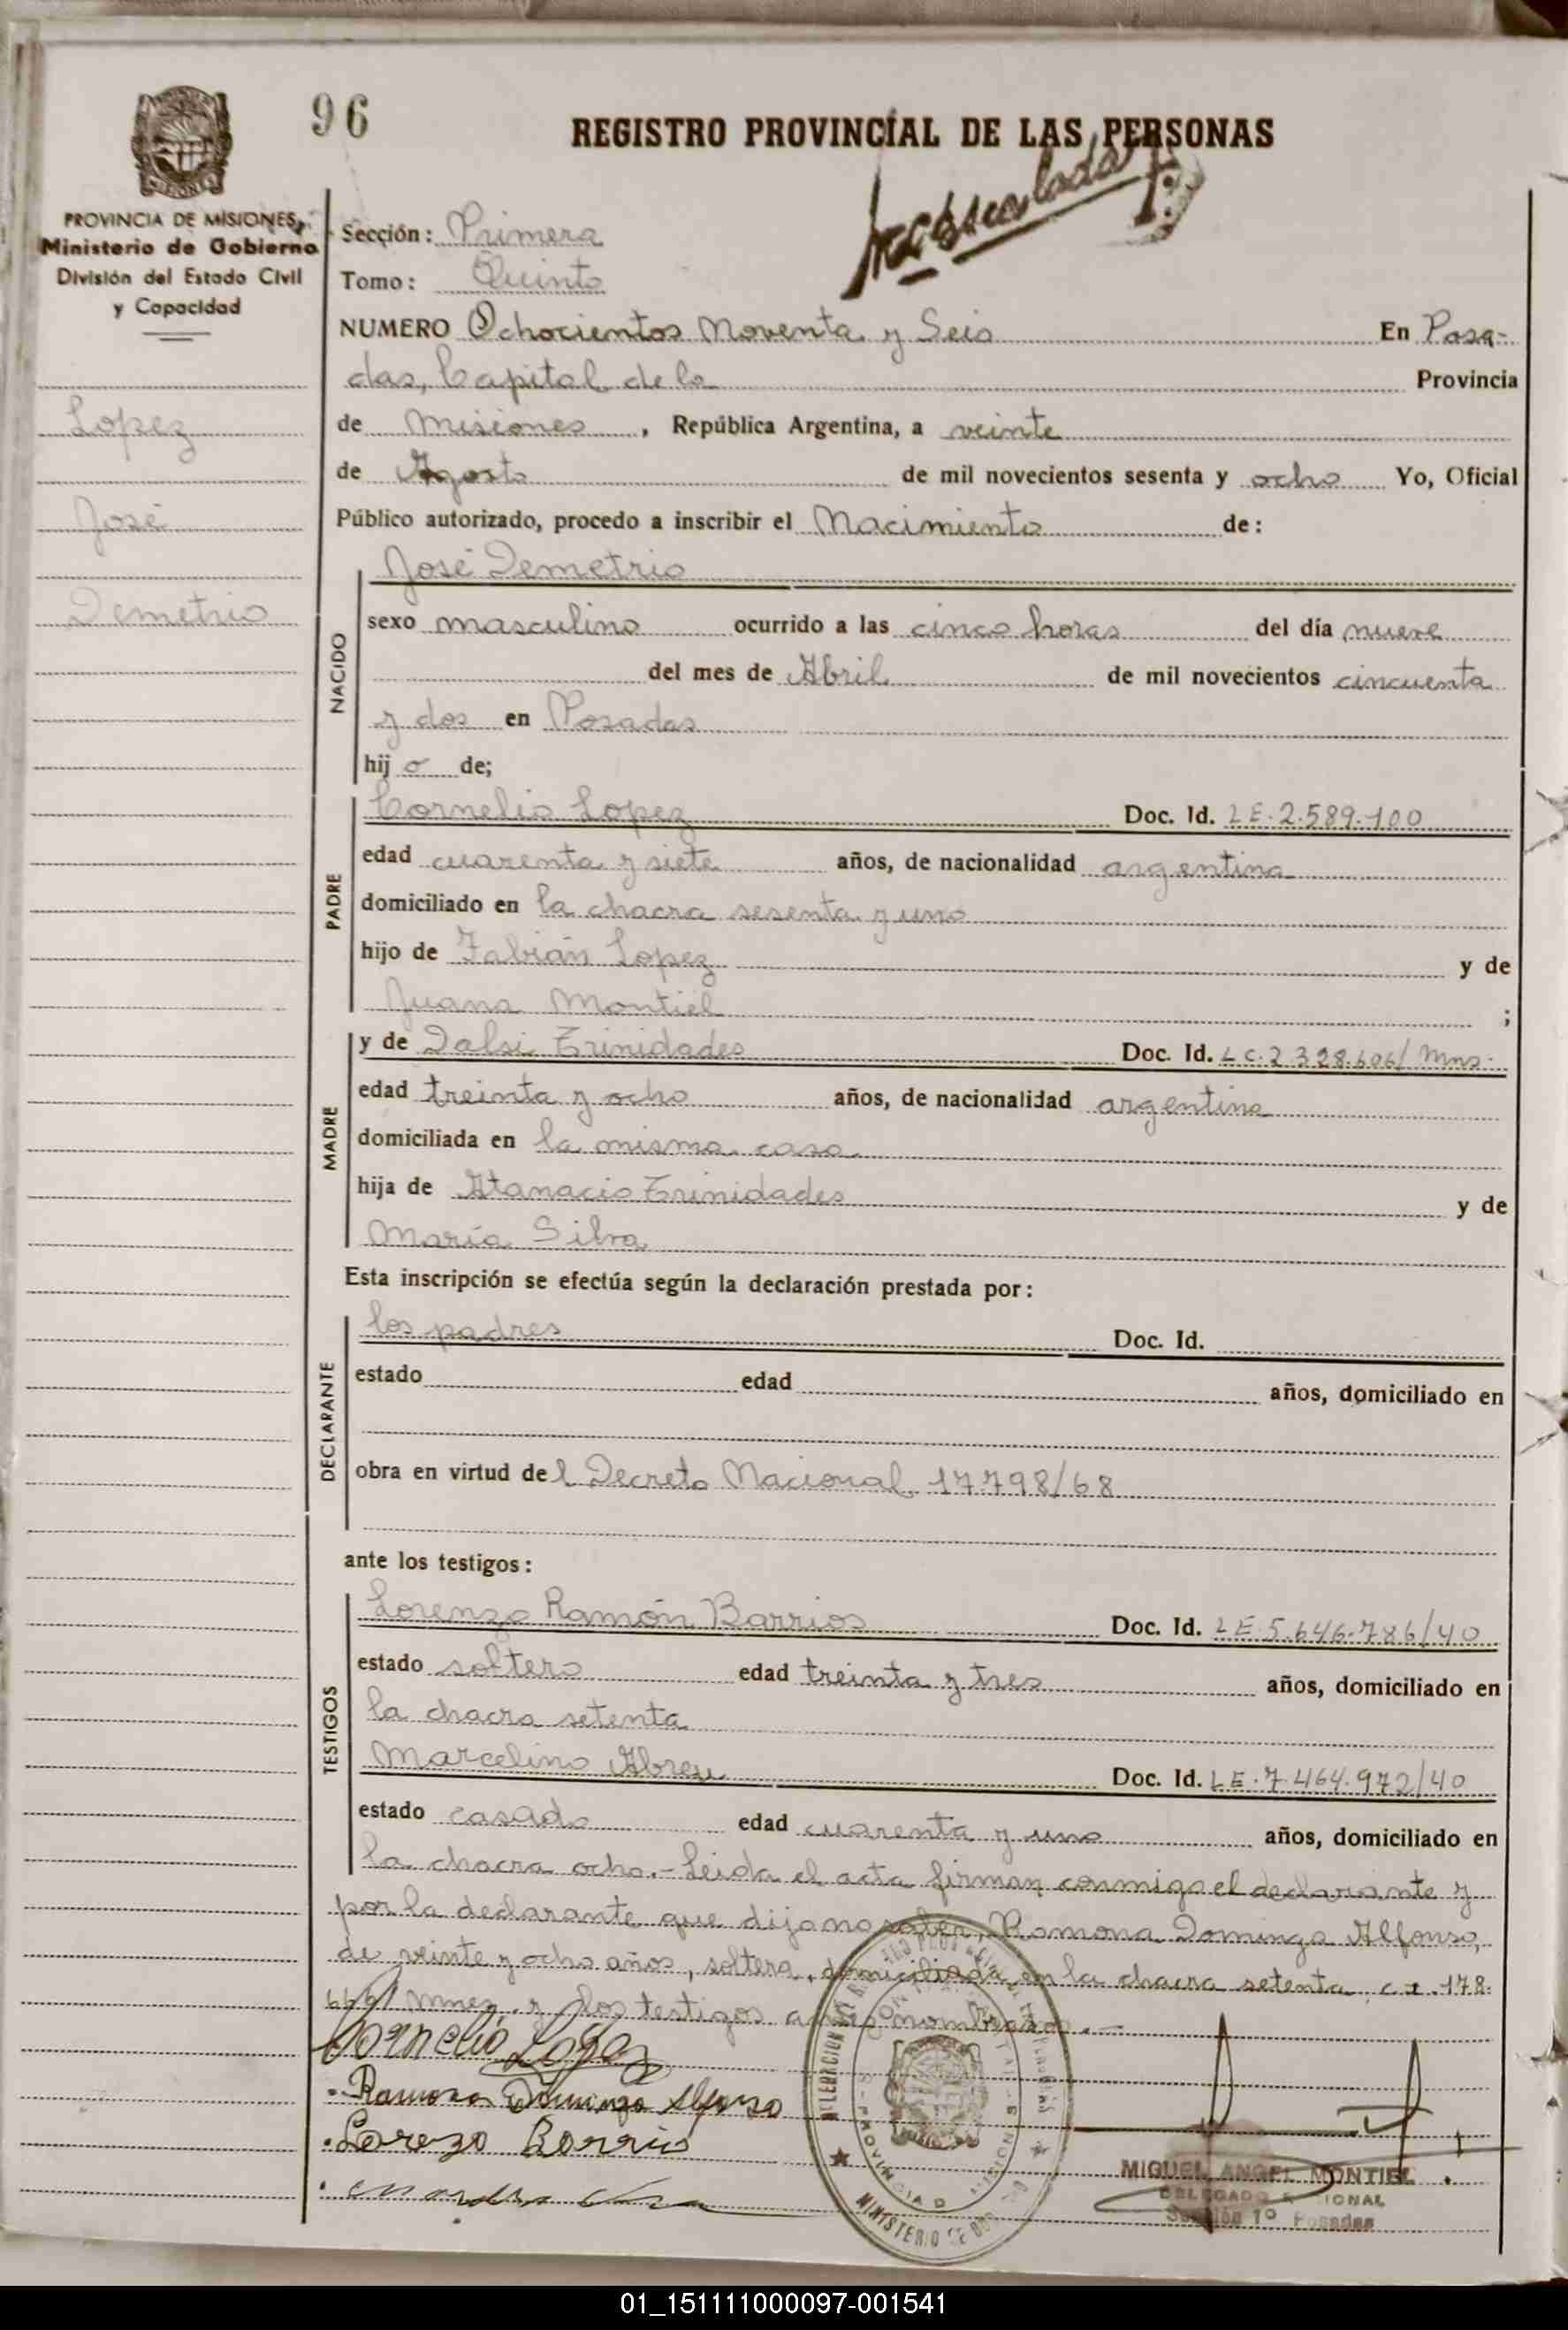 96
REGISTRO PROVINCIAL DE LAS PERSONAS
PROVINCIA DE MISIONES
Ministerio de Gobierno
División del Estado Civil
y Capacidad
Lopez
José
Demetrio
Sección: Primera
Tomo: Quinto
NUMERO Ochocientos Noventa y Seis En Posa-
das, Capital de la Provincia
de Misiones, República Argentina, a veinte
de Agosto de mil novecientos sesenta y ocho Yo, Oficial
Público autorizado, procedo a inscribir el Nacimiento de:
NACIDO
José Demetrio
sexo masculino ocurrido a las cinco horas del día nueve
del mes de Abril de mil novecientos cincuenta
y dos en Posadas
hijo de;
PADRE
Cornelio Lopez Doc. Id. LE.2.589.100
edad cuarenta y siete años, de nacionalidad argentina
domiciliado en la chacra sesenta y uno
hijo de Fabián Lopez y de
Juana Montiel ;
MADRE
y de Dalsi Trinidades Doc. Id. LC.2.328.606/Mns.
edad treinta y ocho años, de nacionalidad argentina
domiciliada en la misma casa
hija de Atanacio Trinidades y de
María Silva
Esta inscripción se efectúa según la declaración prestada por:
DECLARANTE
los padres Doc. Id.
estado edad años, domiciliado en
obra en virtud del Decreto Nacional 17.798/68
ante los testigos:
TESTIGOS
Lorenzo Ramón Barrios Doc. Id. LE.5.646.786/40
estado soltero edad treinta y tres años, domiciliado en
la chacra setenta
Marcelino Abreu Doc. Id. LE.7.464.972/40
estado casado edad cuarenta y uno años, domiciliado en
la chacra ocho.- Leida el acta firman conmigo el declarante y
por la declarante que dijo no saber, Ramona Dominga Alfonso,
de veinte y ocho años, soltera, domiciliada en la chacra setenta, c.I. 178.
y los testigos antes nombrados.-
Cornelio Lopez
Ramona Dominga Alfonso
Lorezo Barrios
MIGUEL ANGEL MONTIEL
DELEGADO
Sección 1º Posadas
MINISTERIO DE
PROVINCIA D
01_151111000097-001541